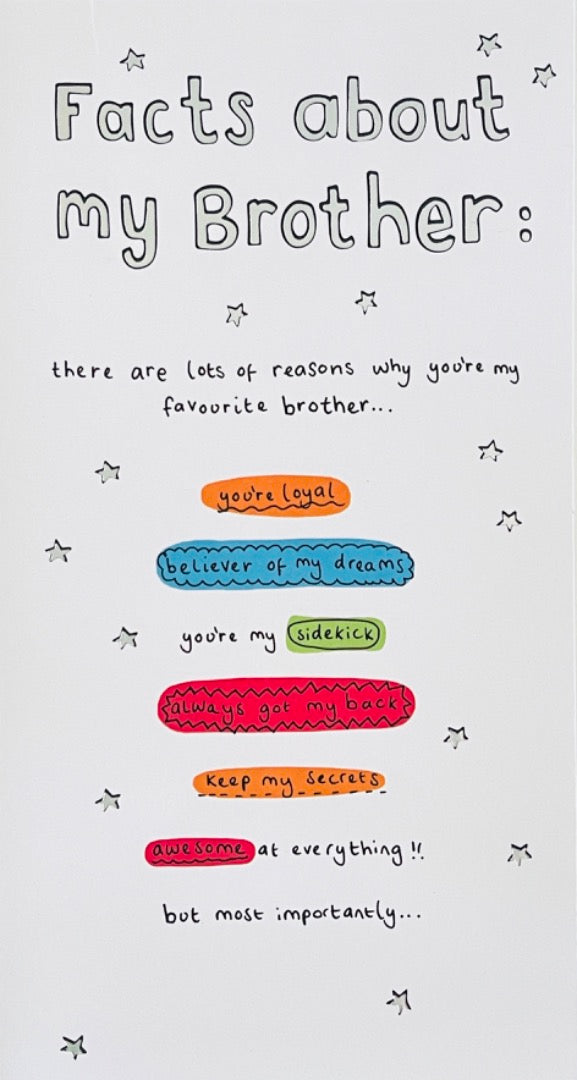 Facts about
my Brother:
there are lots of reasons why you're my
favourite brother...
you're loyal
believer of my dreams
you're my sidekick
always got my back
keep my secrets
awesome at everything!!
but most importantly...